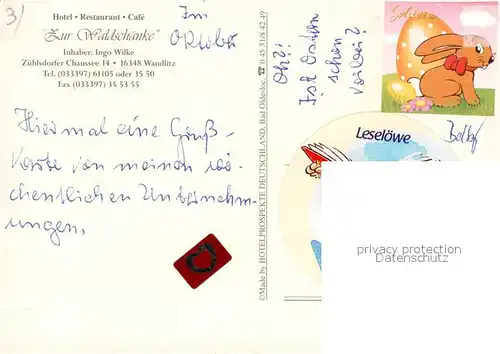 3)
Hotel • Restaurant • Café
"Zur Waldschänke"
Inhaber: Ingo Wilke
Zühlsdorfer Chaussee 14 • 16348 Wandlitz
Tel. (033397) 61105 oder 3550
Fax (033397) 35 53 55
Im
Oktober
Hier mal eine Gruß-
karte von meinen wö-
chentlichen Unternehm-
ungen.
©Made by HOTELPROSPEKTE DEUTSCHLAND, Bad Oldesloe, ☎ 0 45 31/8 42 49
Oh?!
Ist Ostern
schon
vorbei?
Leselöwe
privacy protection
datenschutz